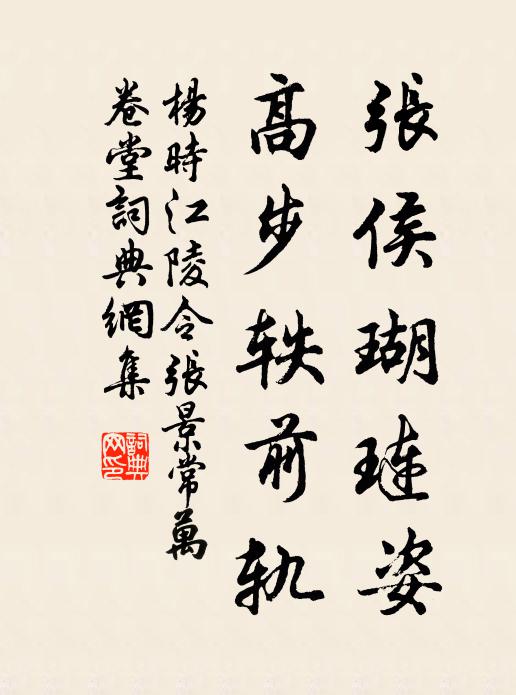 張侯瑚璉姿
高步軼前軌
楊時江陵令張景常萬
卷堂詞典網集
詞典网印